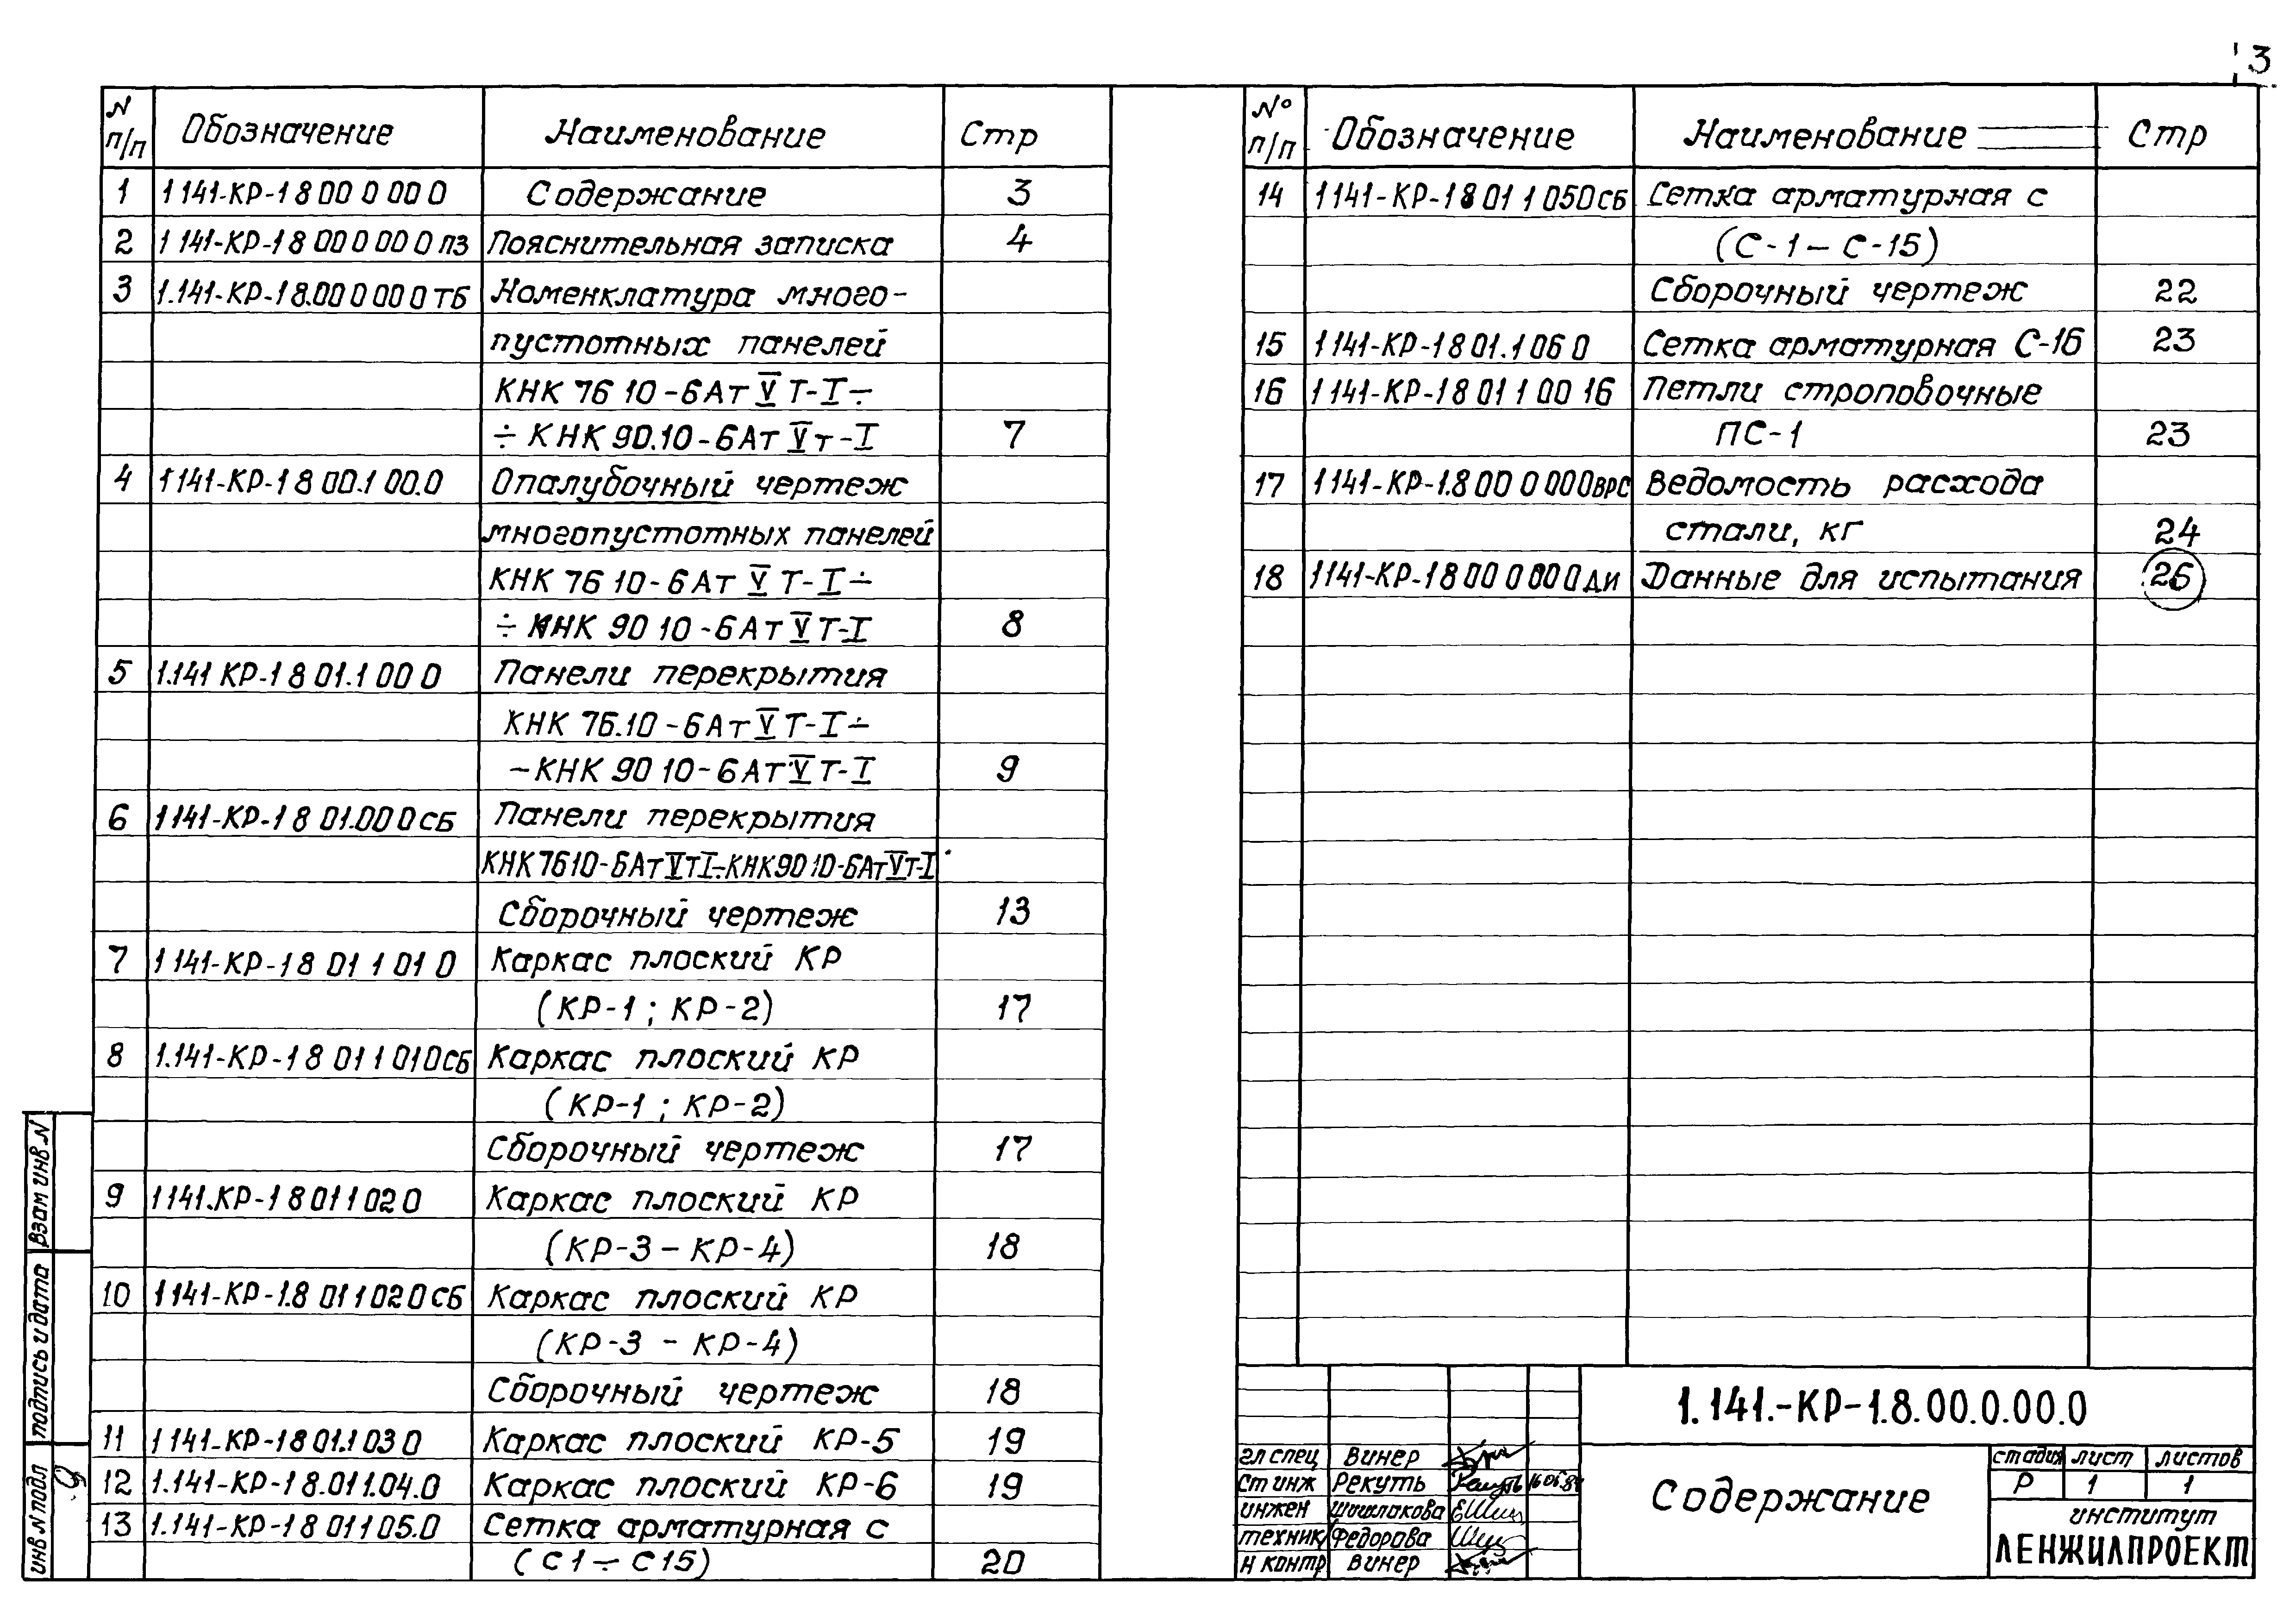 3
N п/п Обозначение Наименование Стр
1 1 141-КР-1 8 00 0 00 0 Содержание 3
2 1 141-КР-1 8 00 0 00 0 ПЗ Пояснительная записка 4
3 1.141-КР-1 8.00 0 00 0 ТБ Номенклатура много-
пустотных панелей
КНК 76 10-6Ат V Т-I ÷
÷ КНК 90.10-6Ат V т-I 7
4 1 141-КР-1 8 00.1 00.0 Опалубочный чертеж
многопустотных панелей
КНК 76 10-6Ат V Т-I ÷
÷ КНК 90 10-6Ат V Т-I 8
5 1.141 КР-1 8 01.1 00 0 Панели перекрытия
КНК 76.10-6Ат V Т-I ÷
-КНК 90 10-6Ат V Т-I 9
6 1 141-КР-1 8 01.00 0 СБ Панели перекрытия
КНК 76 10-6Ат V Т I÷КНК 90 10-6Ат V Т-I
Сборочный чертеж 13
7 1 141-КР-1 8 01 1 01 0 Каркас плоский КР
(КР-1 ; КР-2) 17
8 1.141-КР-1 8 01 1 01 0 СБ Каркас плоский КР
(КР-1 ; КР-2)
Сборочный чертеж 17
9 1 141.КР-1 8 01 1 02 0 Каркас плоский КР
(КР-3 - КР-4) 18
10 1 141-КР-1.8 01 1 02 0 СБ Каркас плоский КР
(КР-3 - КР-4)
Сборочный чертеж 18
11 1 141-КР-1 8 01.1 03 0 Каркас плоский КР-5 19
12 1.141-КР-1 8.01 1.04.0 Каркас плоский КР-6 19
13 1.141-КР-1 8 01 1 05.0 Сетка арматурная С
(С 1 ÷ С 15) 20
№ п/п Обозначение Наименование Стр
14 1 141-КР-1 8 01 1 05 0 СБ Сетка арматурная С
(С-1 - С-15)
Сборочный чертеж 22
15 1 141-КР-1 8 01.1 06 0 Сетка арматурная С-16 23
16 1 141-КР-1 8 01 1 00 16 Петли строповочные
ПС-1 23
17 1 141-КР-1.8 00 0 00 0 ВРС Ведомость расхода
стали, кг 24
18 1 141-КР-1 8 00 0 00 0 ДИ Данные для испытания 26
взам инв. N
подпись и дата
инв N подл
1.141.-КР-1.8.00.0.00.0
гл спец Винер
Ст инж Рекуть
инжен Шошлакова
техник Федорова
Н контр Винер
Содержание
стадия лист листов
Р 1 1
институт
ЛЕНЖИЛПРОЕКТ